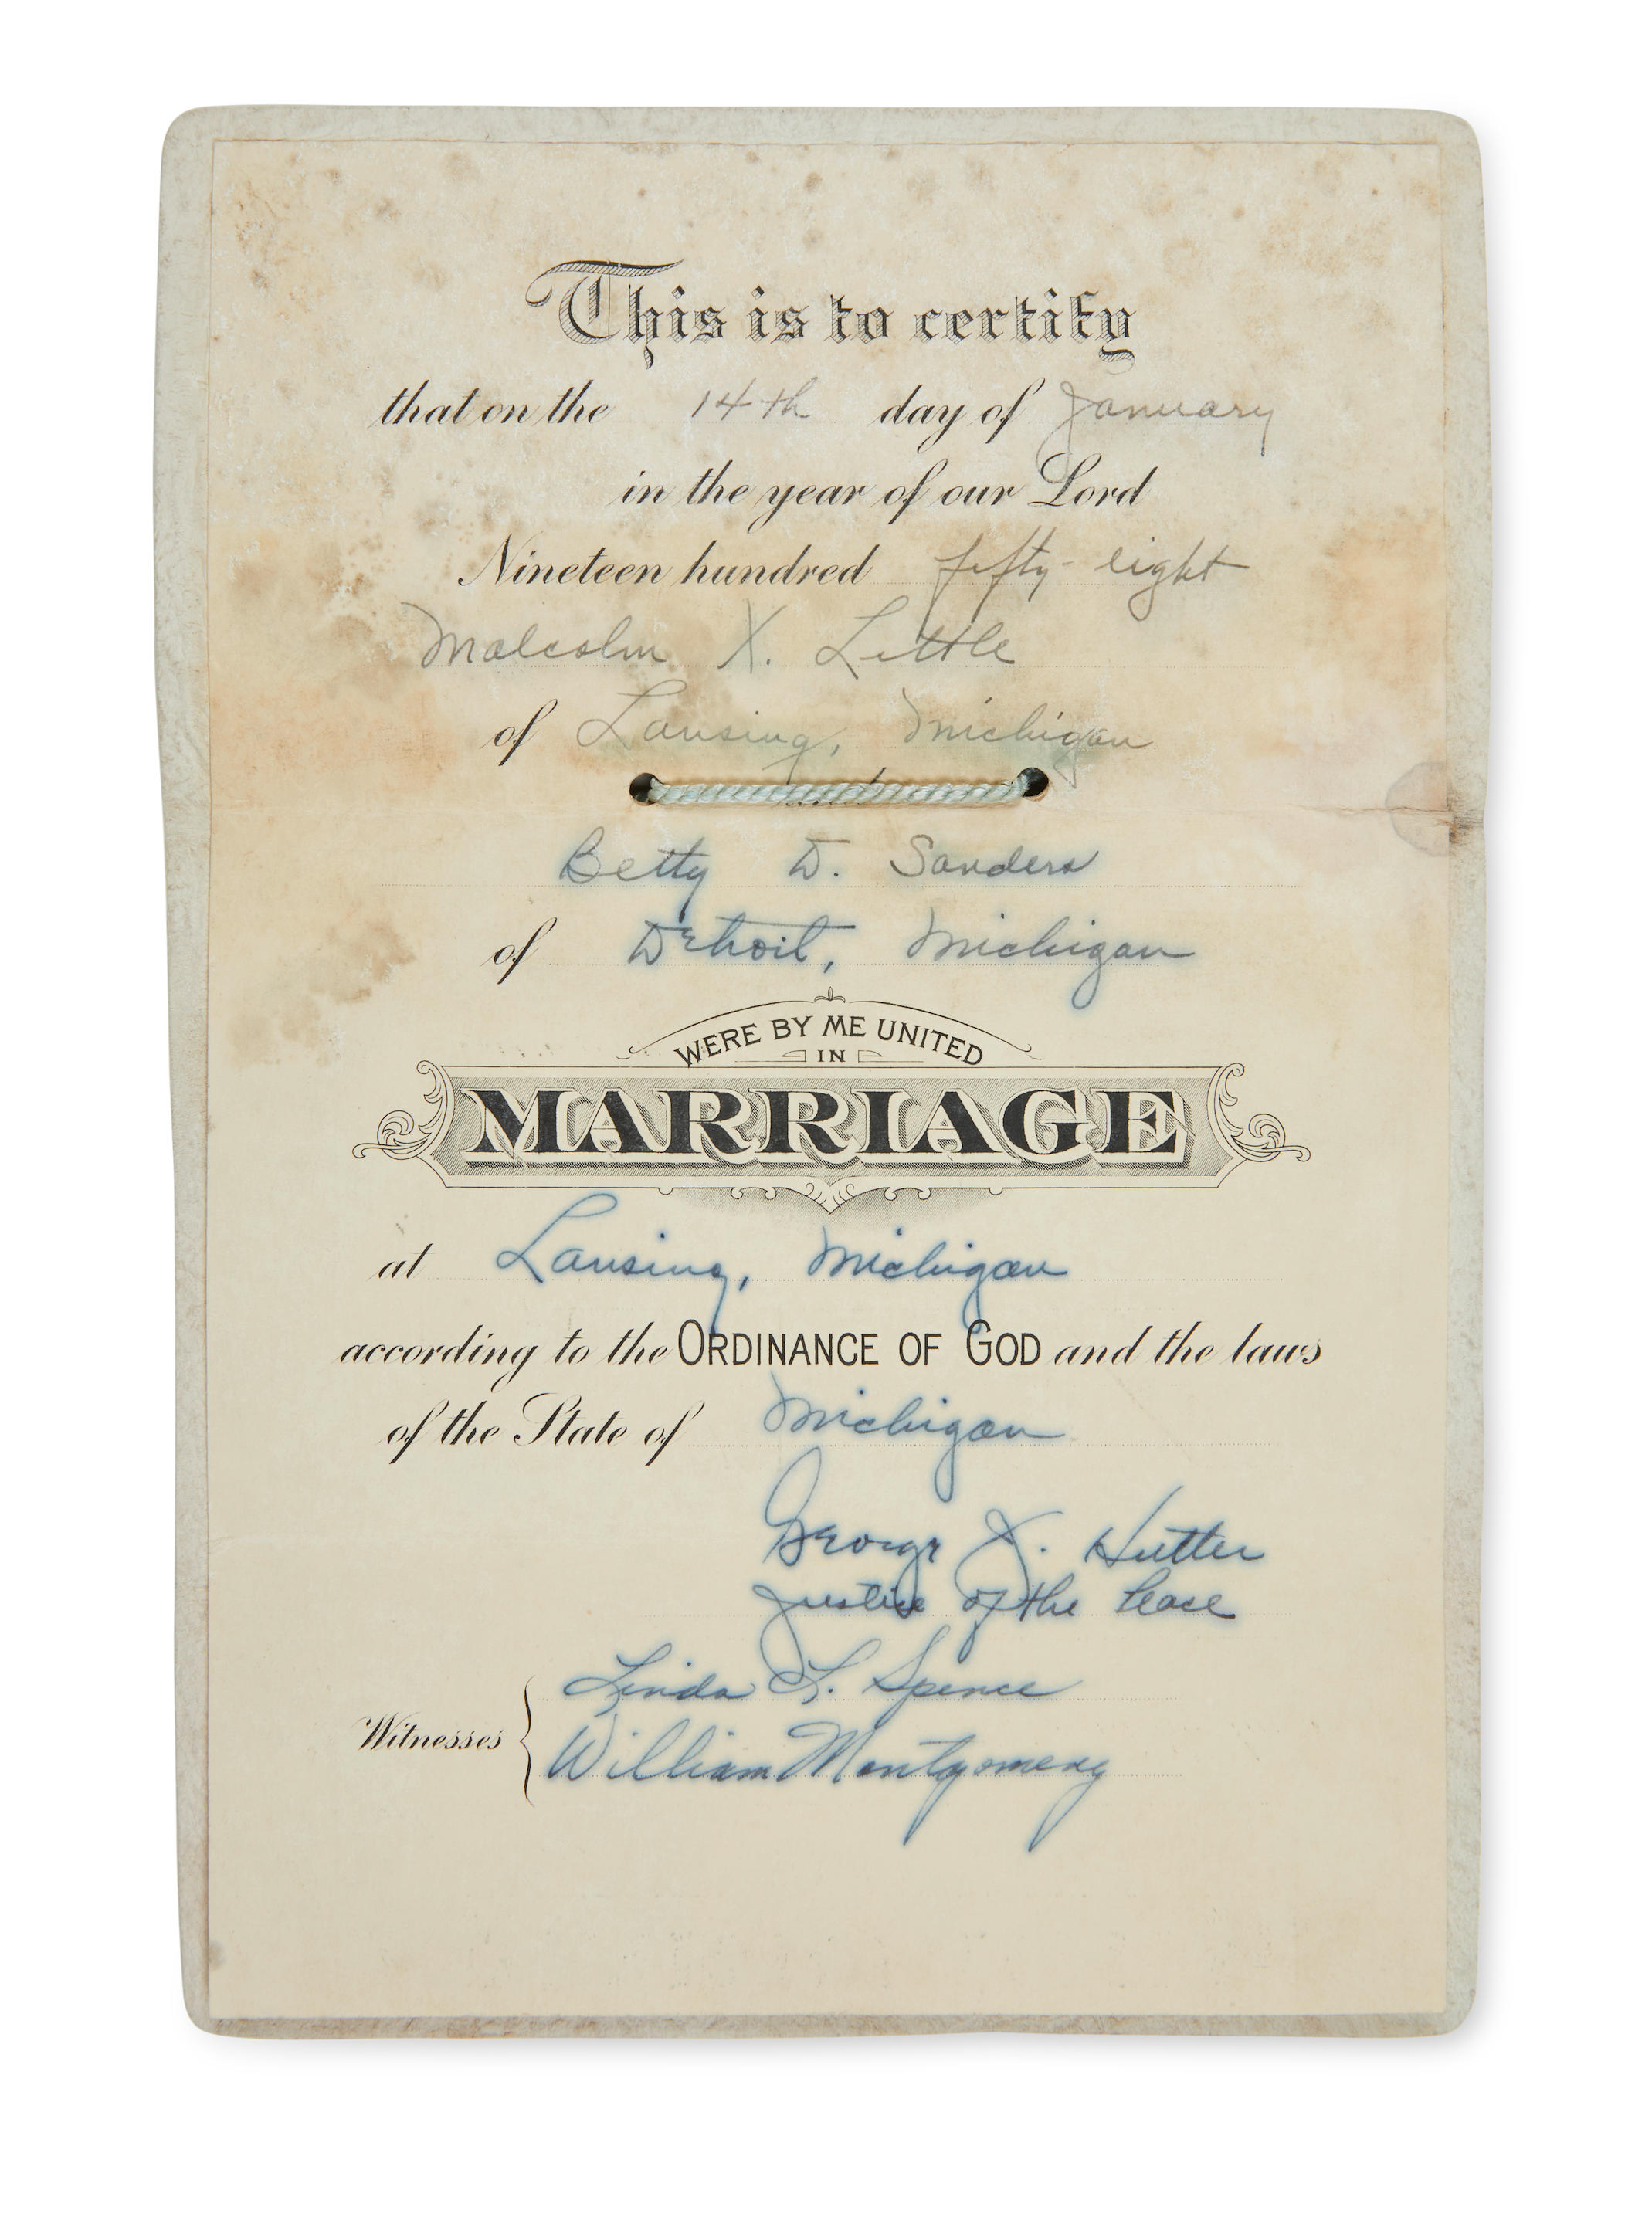 This is to certify
that on the 14th day of January
in the year of our Lord
Nineteen hundred fifty-eight
Malcolm X. Little
of Lansing, Michigan
and
Betty D. Sanders
of Detroit, Michigan
WERE BY ME UNITED
IN
MARRIAGE
at Lansing, Michigan
according to the ORDINANCE OF GOD and the laws
of the State of Michigan
George X. Hutter
Justice of the Peace
Linda L. Spence
Witnesses
William Montgomery